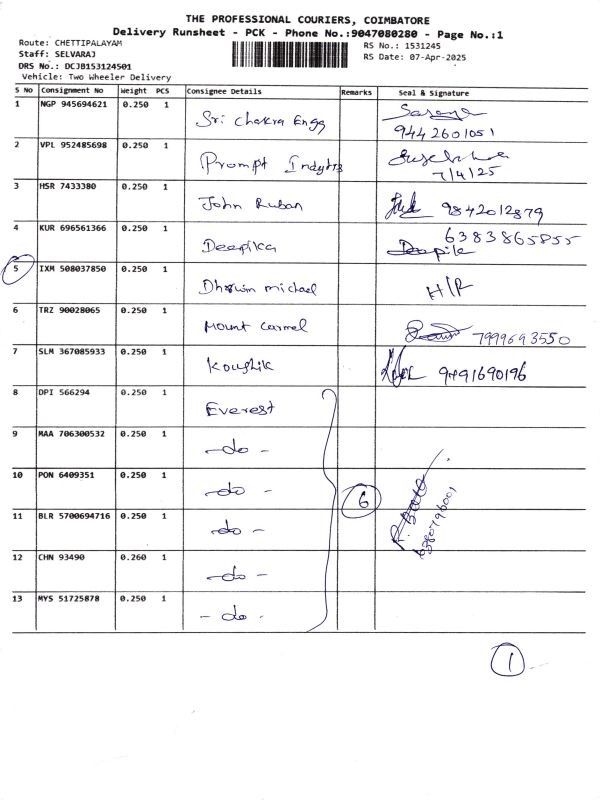 THE PROFESSIONAL COURIERS, COIMBATORE
Delivery Runsheet - PCK - Phone No.:9047080280 - Page No.:1
Route: CHETTIPALAYAM RS No.: 1531245
Staff: SELVARAJ RS Date: 07-Apr-2025
DRS No.: DCJB153124501
Vehicle: Two Wheeler Delivery
S No Consignment No Weight PCS Consignee Details Remarks Seal & Signature
1 NGP 945694621 0.250 1 Sri Chakra Engg 9442601051
2 VPL 952485698 0.250 1 Prompt 7/4/25
3 HSR 7433380 0.250 1 John Ruban 9842012879
4 KUR 696561366 0.250 1 Deepika 6383865855
Deepika
5 IXM 508037850 0.250 1 michael H/R
6 TRZ 90028065 0.250 1 Mount Carmel 7999693550
7 SLM 367085933 0.250 1 Koushik 9491690196
8 DPI 566294 0.250 1 Everest
9 MAA 706300532 0.250 1 -do-
10 PON 6409351 0.250 1 -do- 6
11 BLR 5700694716 0.250 1 -do-
12 CHN 93490 0.260 1 -do-
13 MYS 51725878 0.250 1 -do-
1